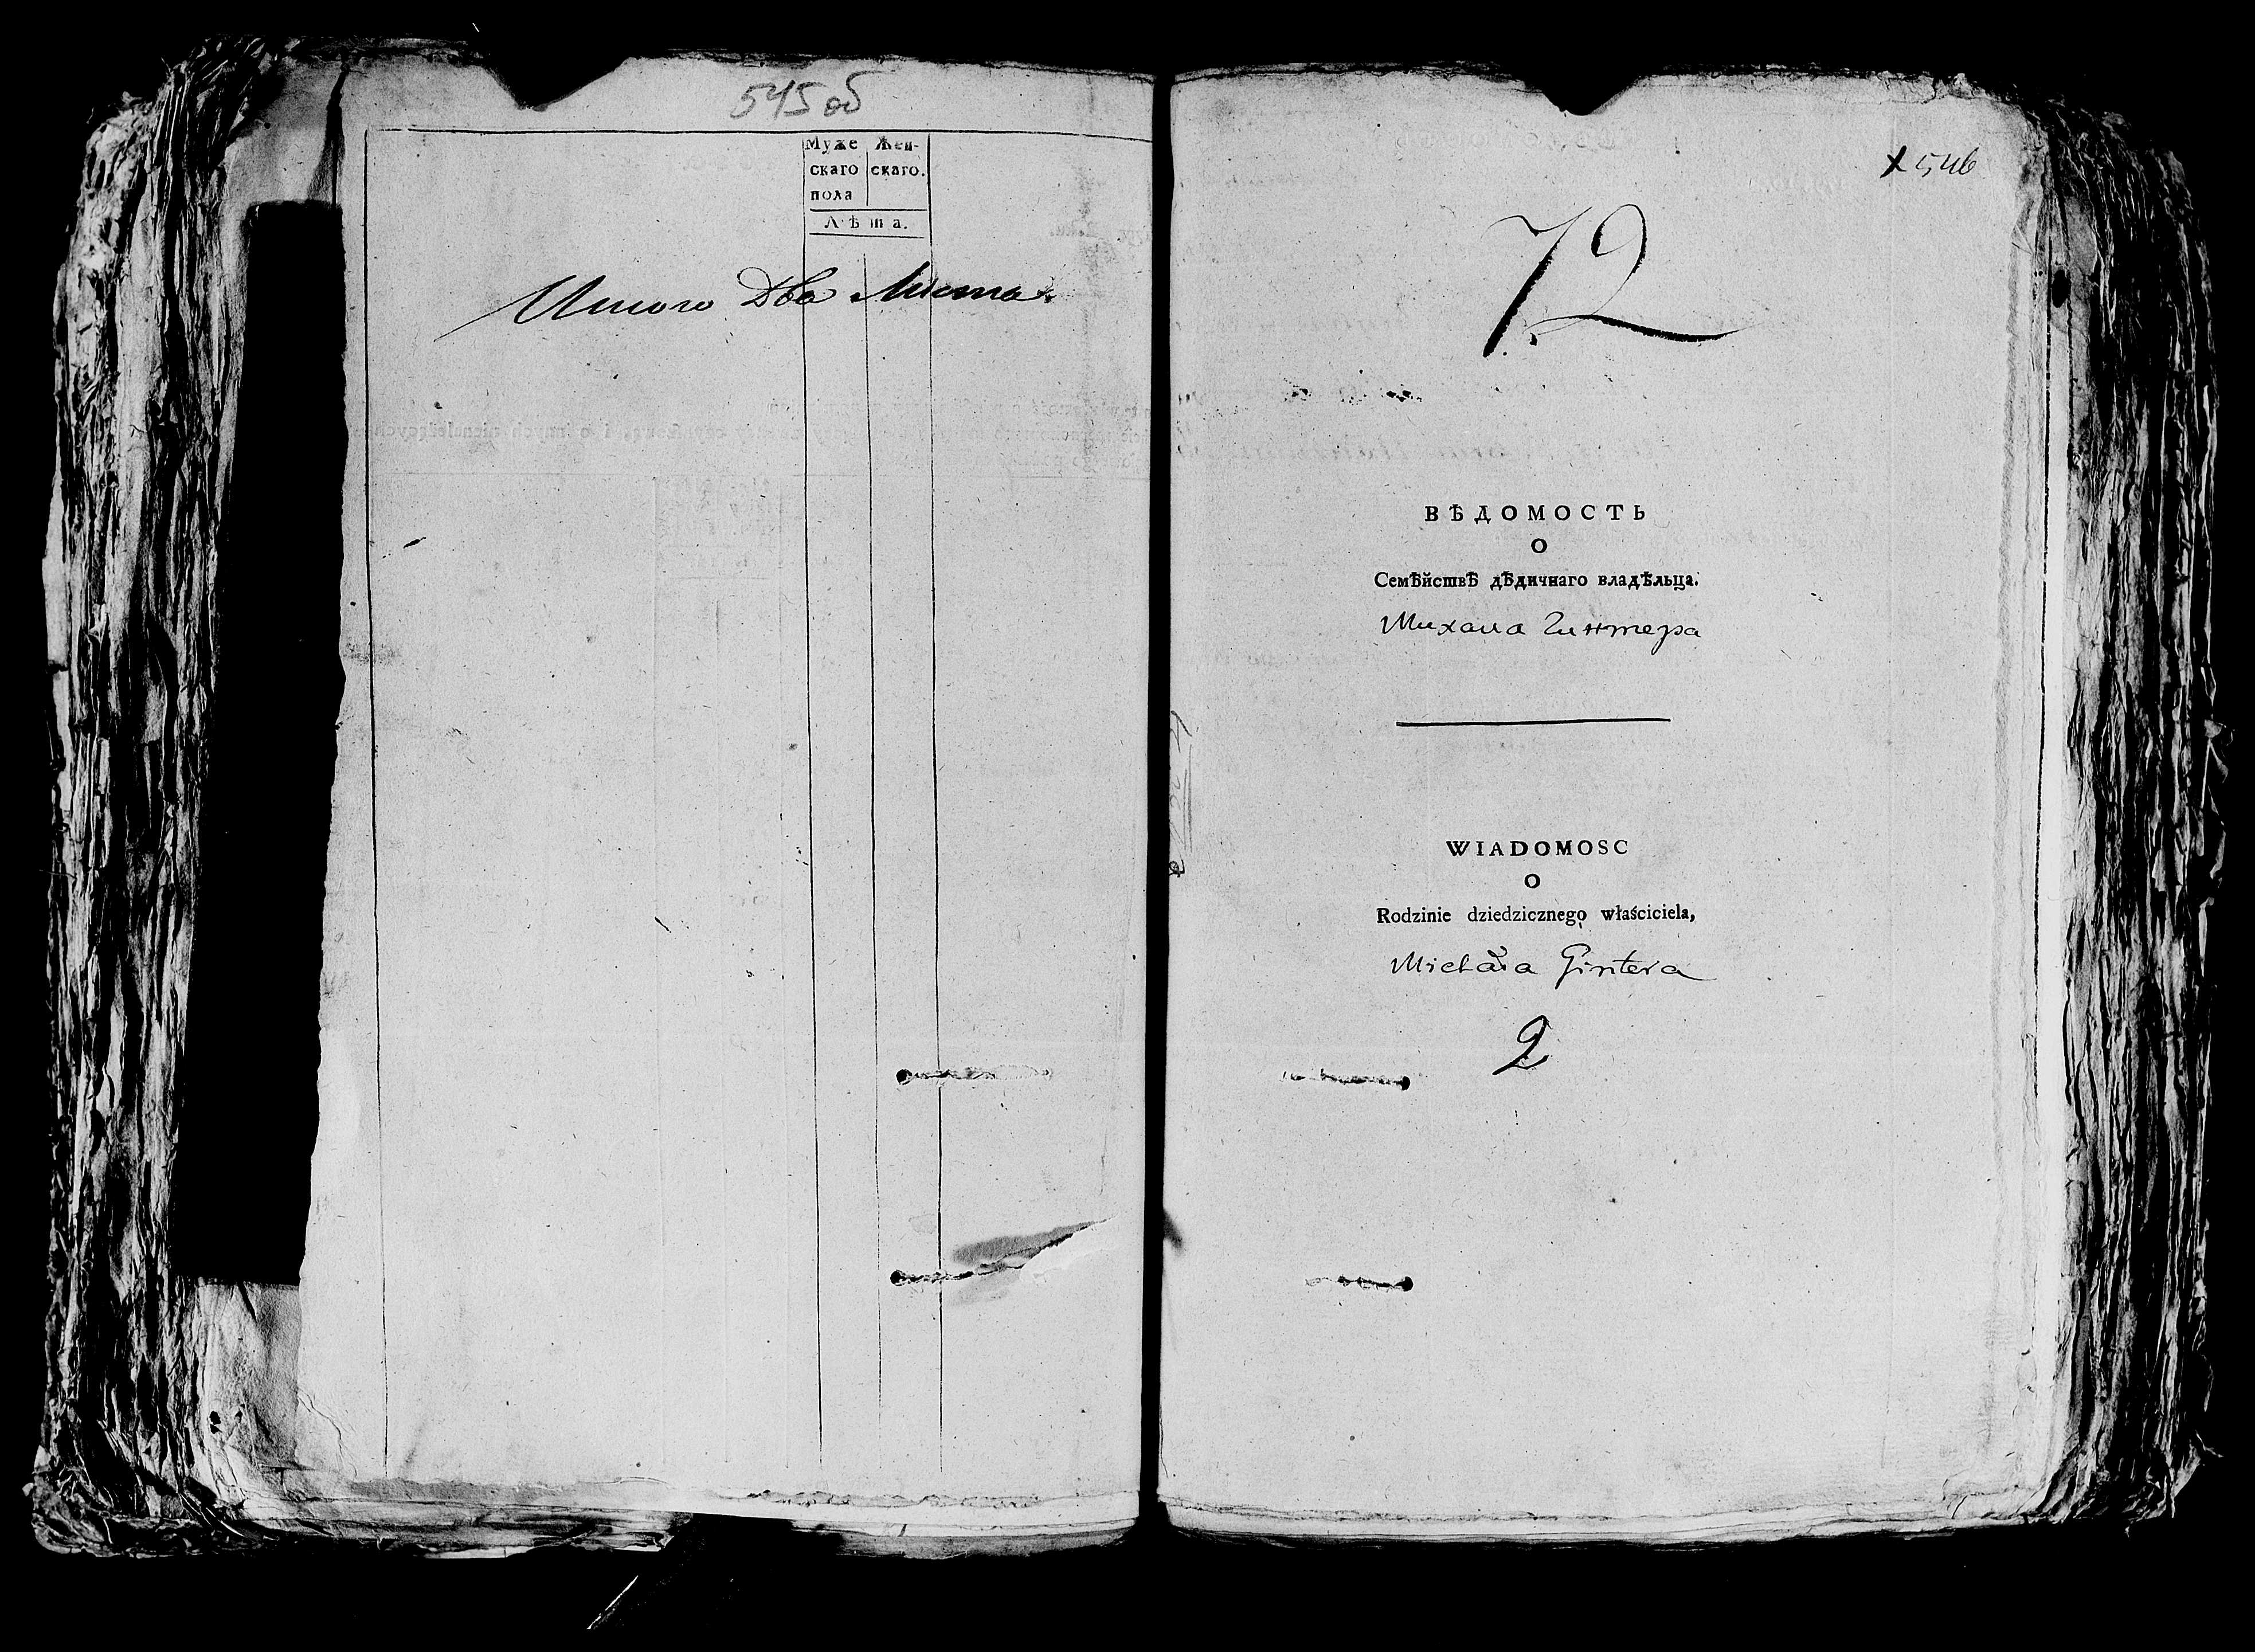 545 об
Муже Жен-
скаго скаго.
пола
Лѣта.
Итого Два Листа
546
72
ВѢДОМОСТЬ
О
Семѣйствѣ дѣдичнаго владѣльца.
Михала Гинтера
WIADOMOSC
O
Rodzinie dziedzicznego właściciela,
Michała Gintera
2